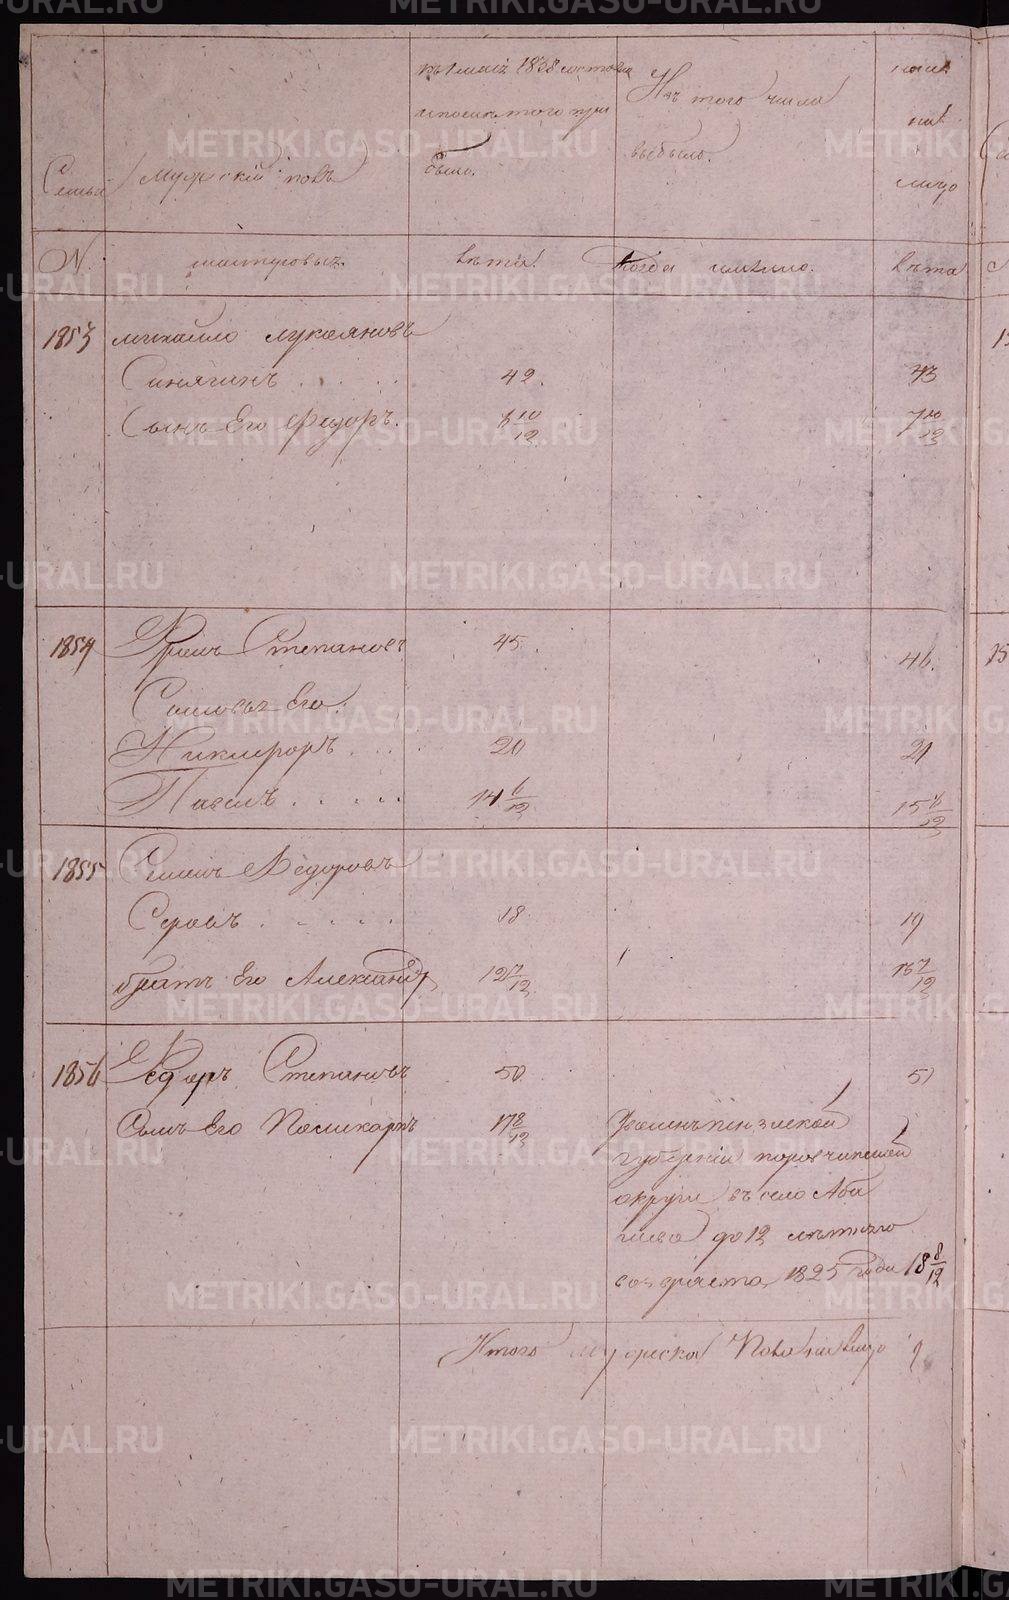 Семьи
Мужскій полъ
къ 1 маія 1838 состояла
и после того при
было.
Изъ того числа
выбыло.
ныне
на
лицо
N.
мастеровых.
лѣта.
Когда именно.
лѣта
1853 михайло лукояновъ
Синягинъ . . . . . 42. 43
Сынъ Его Федоръ. 6 10/12 7 10/12
1854 Ефимъ Степановъ 45. 46.
Сыновья Его:
Никифоръ . . . . 20 21
Павелъ . . . . . 14 6/12 15 6/12
1855 Семенъ Федоровъ
Серовъ . . . . . 18 19
братъ Его Александр 12 7/12 13 7/12
1856 Федоръ Степановъ 50 51
Сынъ Его Поликарпъ 17 8/12 Уволенъ пензенской
губерніи
округи въ село
до 12 лѣтняго
возраста, 1825 года 18 8/12
Итого мужеска Пола на лицо 9
METRIKI.GASO-URAL.RU